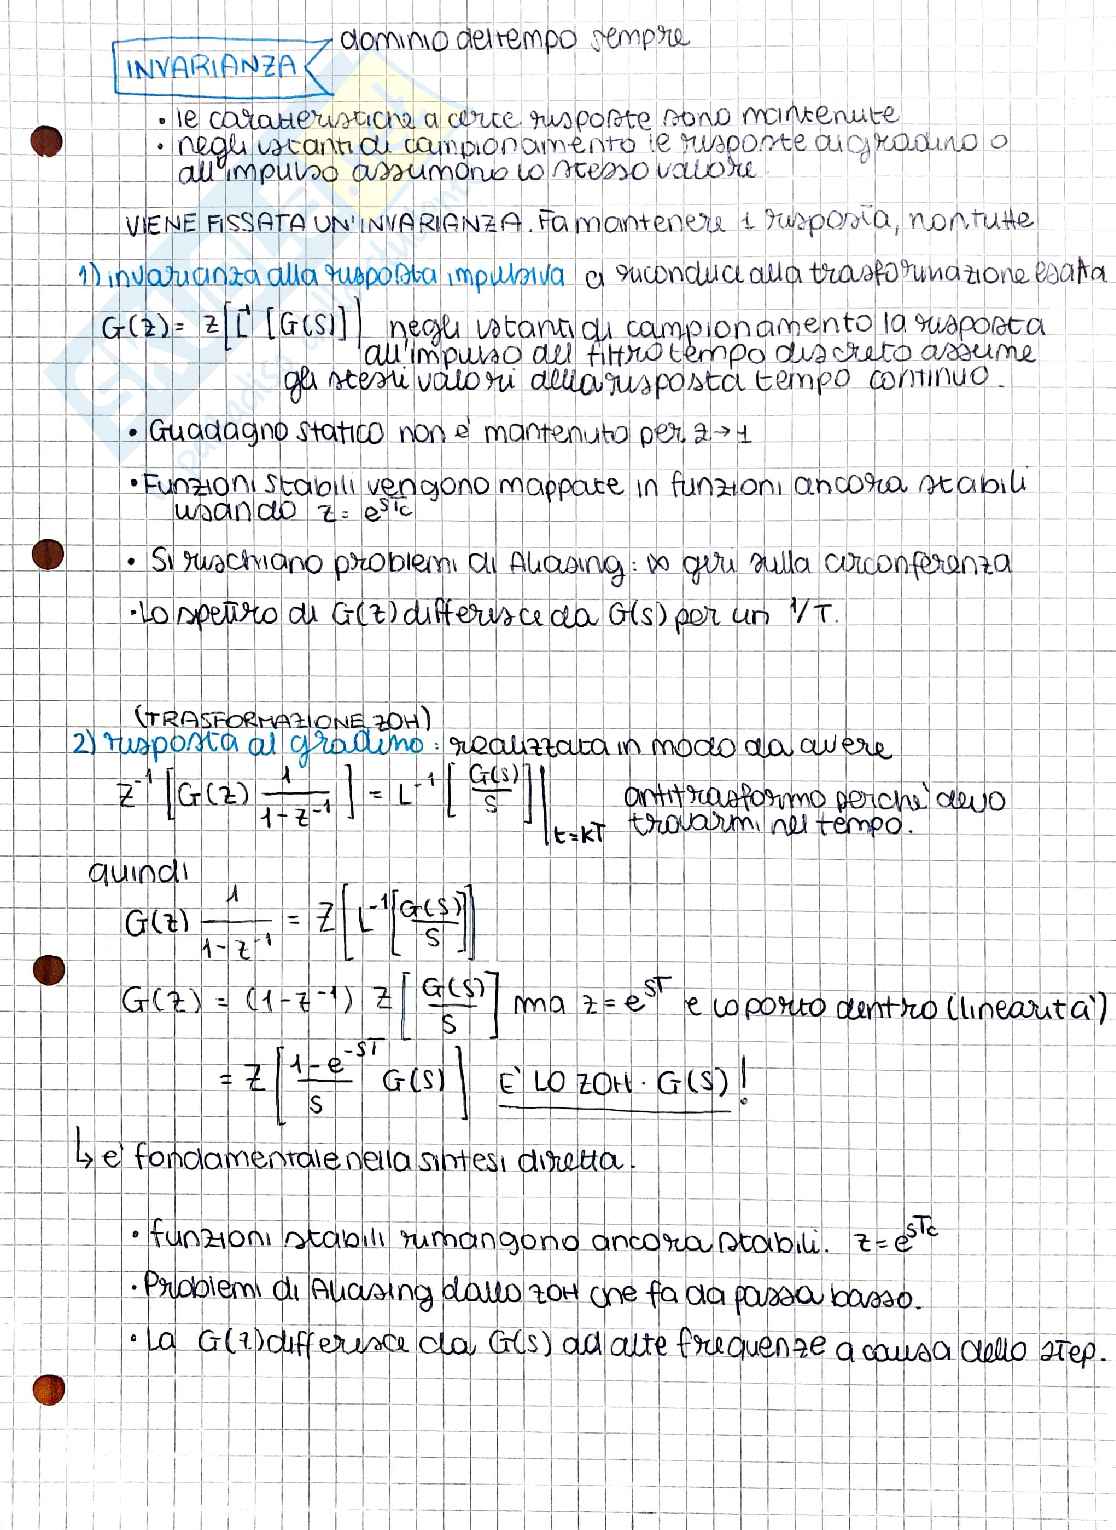 dominio del tempo sempre
INVARIANZA
• le caratteristiche a certe risposte sono mantenute
• negli istanti di campionamento le risposte al gradino o
all'impulso assumono lo stesso valore
VIENE FISSATA UN'INVARIANZA. Fa mantenere 1 risposta, non tutte
1) invarianza alla risposta impulsiva ci riconduci alla trasformazione esatta
G(z) = Z[L⁻¹[G(s)]] negli istanti di campionamento la risposta
all'impulso del filtro tempo discreto assume
gli stessi valori della risposta tempo continuo.
• Guadagno statico non è mantenuto per z→1
• Funzioni stabili vengono mappate in funzioni ancora stabili
usando z = e^sTc
• Si rischiano problemi di Aliasing: ∞ giri sulla circonferenza
• Lo spettro di G(z) differisce da G(s) per un 1/T.
(TRASFORMAZIONE ZOH)
2) risposta al gradino: realizzata in modo da avere
Z⁻¹[G(z) 1/(1-z⁻¹)] = L⁻¹[G(s)/s]|t=kT antitrasformo perche' devo
trovarmi nel tempo.
quindi
G(z) 1/(1-z⁻¹) = Z[L⁻¹[G(s)/s]]
G(z) = (1-z⁻¹) Z[G(s)/s] ma z = e^sT e lo porto dentro (linearità)
= Z[(1-e^-sT)/s G(s)] E' LO ZOH · G(s)!
↳ e' fondamentale nella sintesi diretta.
• funzioni stabili rimangono ancora stabili. z = e^sTc
• Problemi di Aliasing dallo ZOH che fa da passa basso.
• La G(z) differisce da G(s) ad alte frequenze a causa dello step.